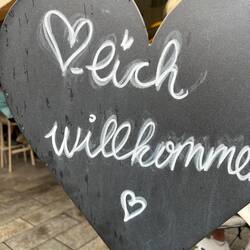 ♡-lich
willkommen
♡